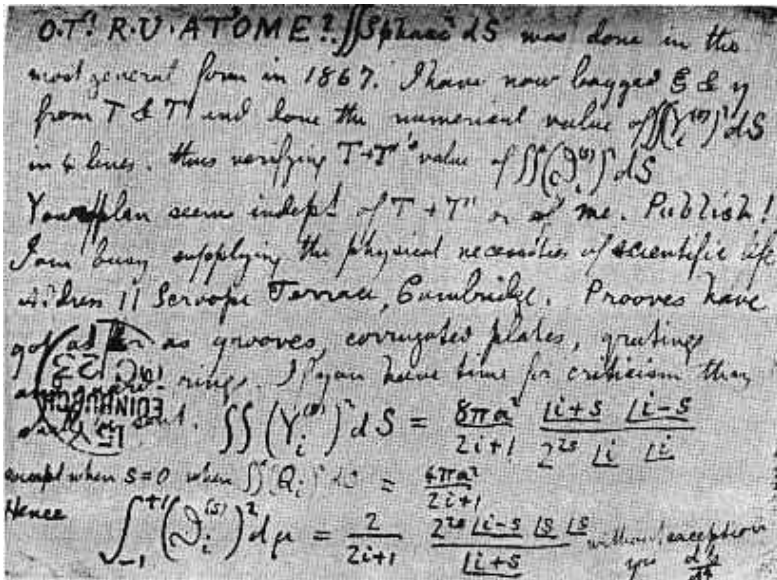 O.T'! R.U. AT'OME? ∬Spharm² dS was done in the
most general form in 1867. I have now bagged ξ & η
from T & T' and done the numerical value of ∬(Y_i^(s))² dS
in 4 lines. thus verifying T+T''s value of ∬(ϑ_i^(s))² dS
Your plan seems indept of T+T' or of me. Publish!
I am busy supplying the physical necessities of scientific life
address 11 Scroope Terrace, Cambridge. Prooves have
got as far as grooves, corrugated plates, gratings
rings. If you have time for criticism they
sent. ∬(Y_i^(s))² dS = 8πa²/(2i+1) · |i+s |i-s / 2^2s |i |i
except when s=0 when ∬(Q_i)² dS = 4πa²/(2i+1)
Hence ∫_-1^+1 (ϑ_i^(s))² dμ = 2/(2i+1) · 2^2s |i-s |s |s / |i+s without exception
yrs dp/dt
EDINBURGH